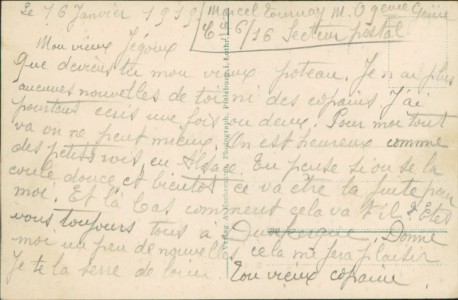 Le 16 Janvier 1919 Marcel Tournay M. O génie Génie
Cie 6/16 Secteur postal
Mon vieux Jégoux
Que deviens tu mon vieux poteau. Je n'ai plus
aucunes nouvelles de toi ni des copains J'ai
pourtant ecris une fois ou deux. Pour moi tout
va on ne peut mieux. On est heureux comme
des petits rois en Alsace. Tu penses si on se la
coule douce et bientôt ce va être la fuite pour
moi. Et là bas comment cela va t'il? Etes
vous toujours tous à Dunkerque. Donne
moi un peu de nouvelles, cela me fera plaisir
Je te la serre de loin. Ton vieux copain